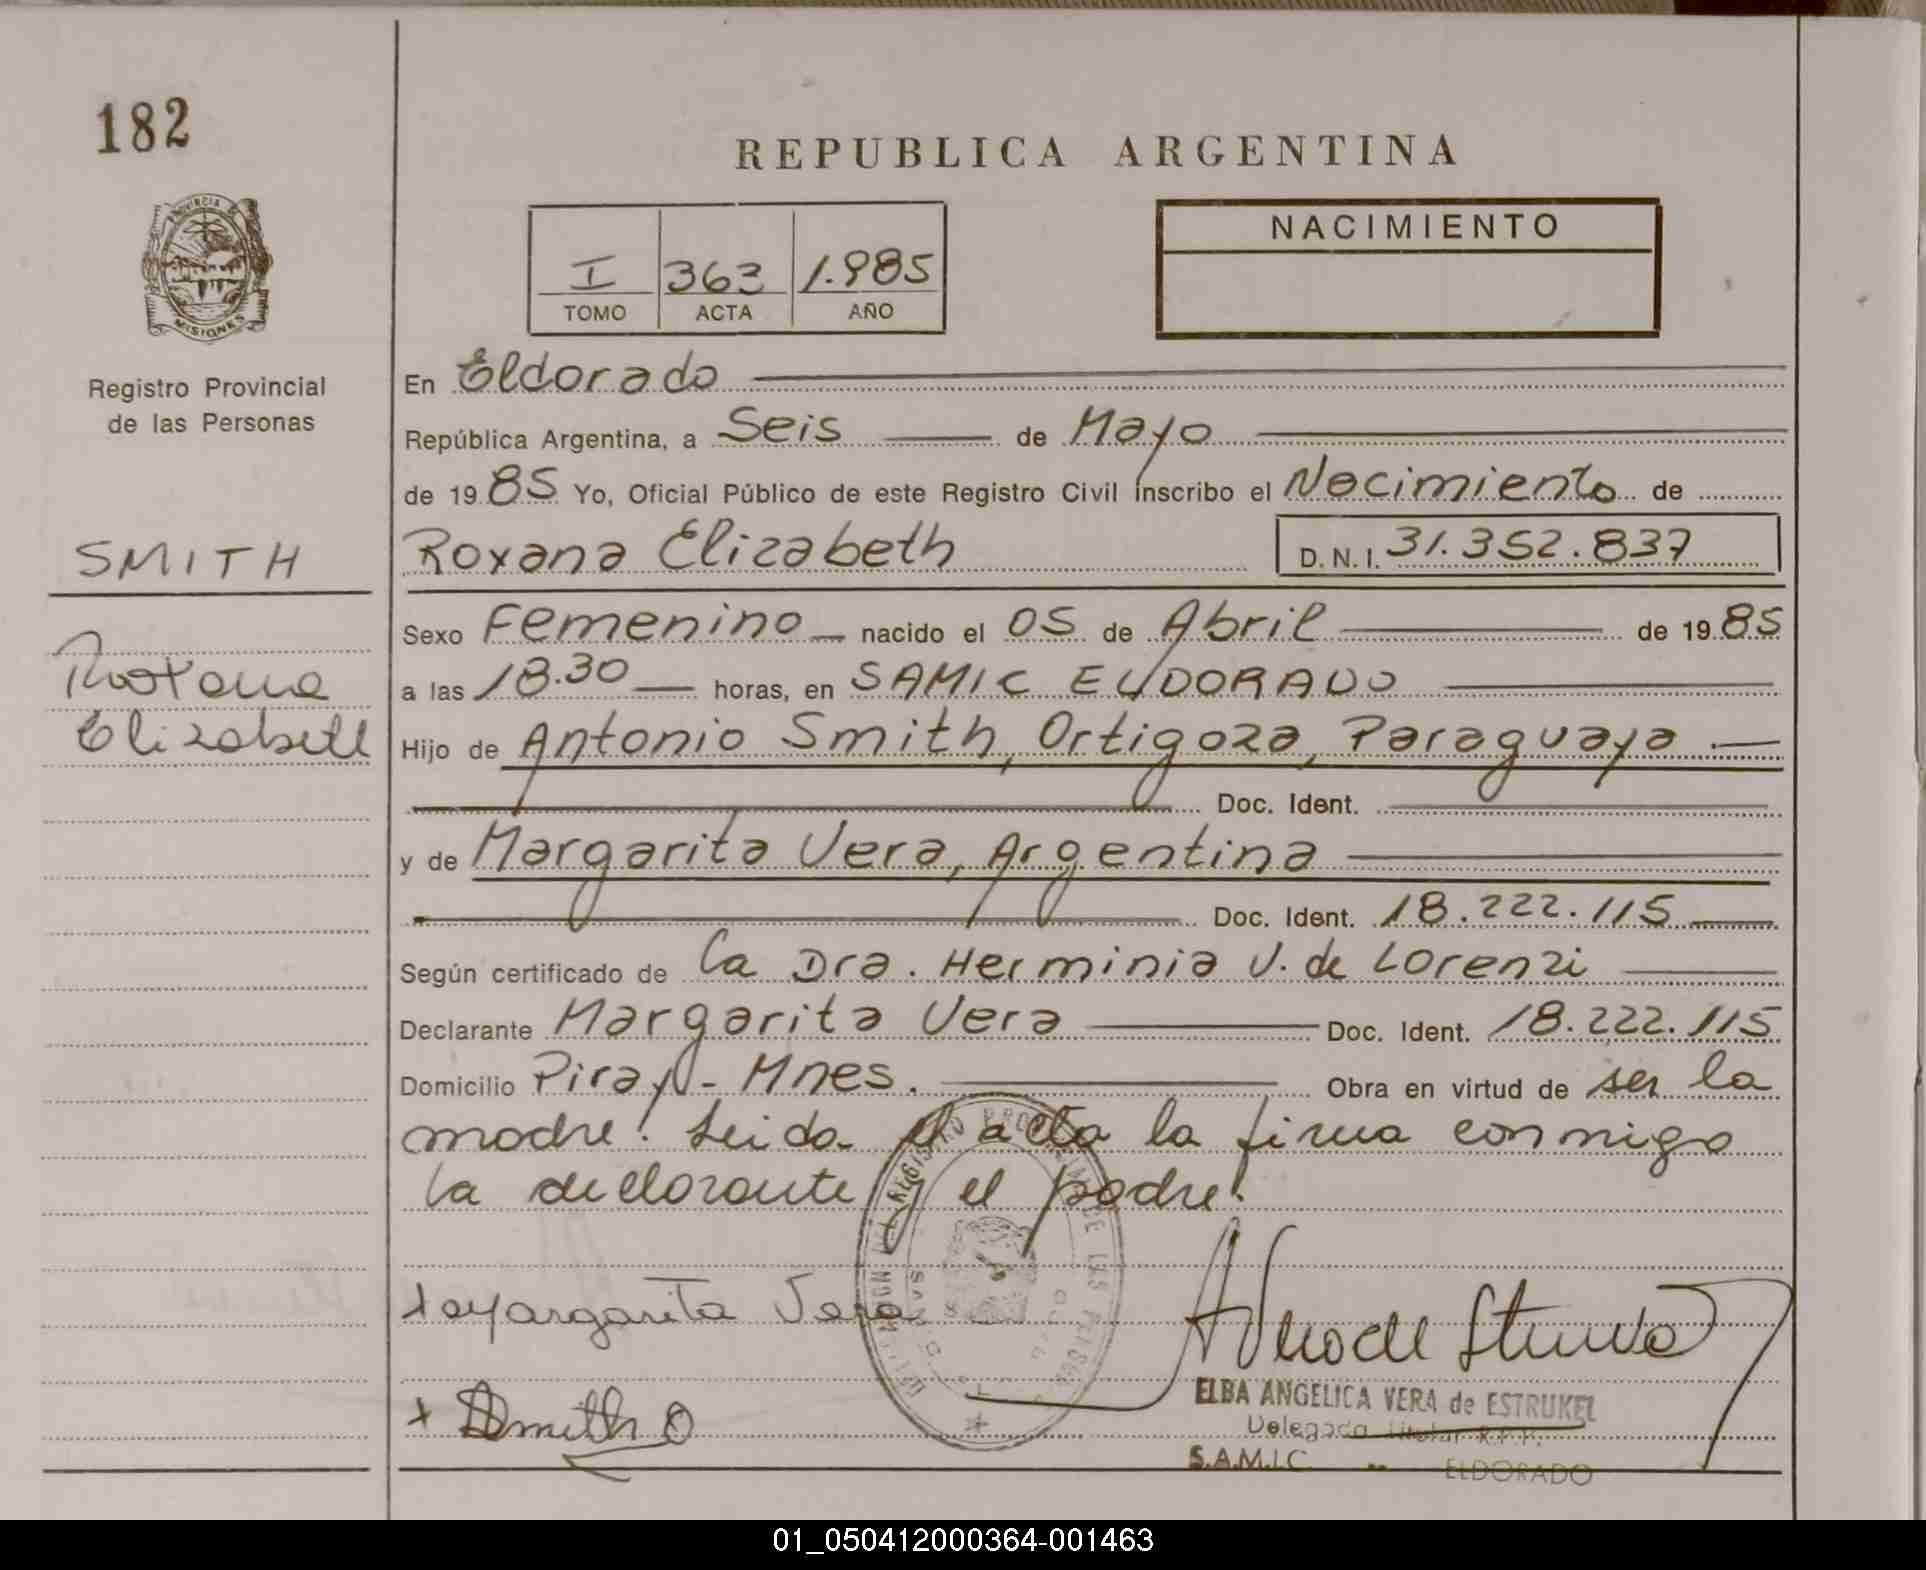 182
REPUBLICA ARGENTINA
PROVINCIA DE
MISIONES
Registro Provincial
de las Personas
I 363 1.985
TOMO ACTA AÑO
NACIMIENTO
En Eldorado
República Argentina, a Seis de Mayo
de 1985 Yo, Oficial Público de este Registro Civil inscribo el Nacimiento de
SMITH
Roxana Elizabeth D.N.I. 31.352.837
Roxana
Elizabeth
Sexo Femenino nacido el 05 de Abril de 1985
a las 18.30 horas, en SAMIC ELDORADO
Hijo de Antonio Smith, Ortigoza, Paraguaya
Doc. Ident.
y de Margarita Vera, Argentina
Doc. Ident. 18.222.115
Según certificado de La Dra. Herminia V. de Lorenzi
Declarante Margarita Vera Doc. Ident. 18.222.115
Domicilio Piray - Mnes. Obra en virtud de ser la
madre. Leida el acta la firma conmigo
la declarante y el padre.
Margarita Vera
ASmith O
ELBA ANGELICA VERA de ESTRUKEL
Delegada Titular R.P.P.
S.A.M.I.C. ELDORADO
01_050412000364-001463